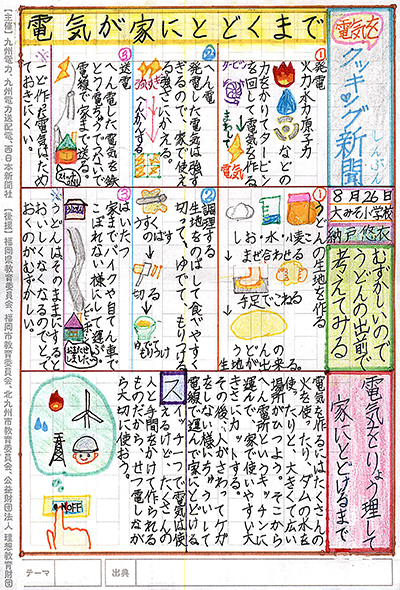 電気が家にとどくまで
電気を
クッキング新聞
しんぶん
8月26日
大みそ小学校
むずかしいので
うどんの出前で
考えてみる
電気をりょう理して
家にとどけるまで
①発電
火力・水力・原子力などの
力をかりてタービン
を回して電気を作る
タービン
まわす
電気
②へん電
発電した電気は強す
ぎるので、家で使え
る強さにかえる。
③送電
へん電した電気を鉄
とうや電ちゅうでつないで
電線で家に送る。
※一ど作た電気はため
おきにくい。
①うどんの生地を作る
しお・水・小麦こ
まぜ合わせる
手足でこねる
うどんの
生地が出来る。
②調理する
生地をのばして食べやすく
切って、ゆでて、もりつけ
うすく
のばす
切る
ゆでて
もりつけ
③はいたつ
家までバイクや自てん車で
こぼれない様にして運ぶ。
※うどんはそのままにすると
おいしくなくなるのでとって
おくのがむずかしい。
電気を作るにはたくさんの
火を使ったり、ダムの水を
使ったりと、大きくて広い
場所がひつよう。そこから
へん電所というキッチンに
運んで、家で使いやすい大
きさにカットする。
その後、人がさわってケガ
をしない様に、ちゅうして
電線で家にとどける
スイッチ一つで電気は使
えるけど、たくさんの
人と手間をかけて作られる
ものだから、せつ電しなが
ら大切に使おう。
OFF
テーマ
出典
【主催】九州電力、九州電力送配電、西日本新聞社 【後援】福岡県教育委員会、福岡市教育委員会、北九州市教育委員会、公益財団法人 理想教育財団